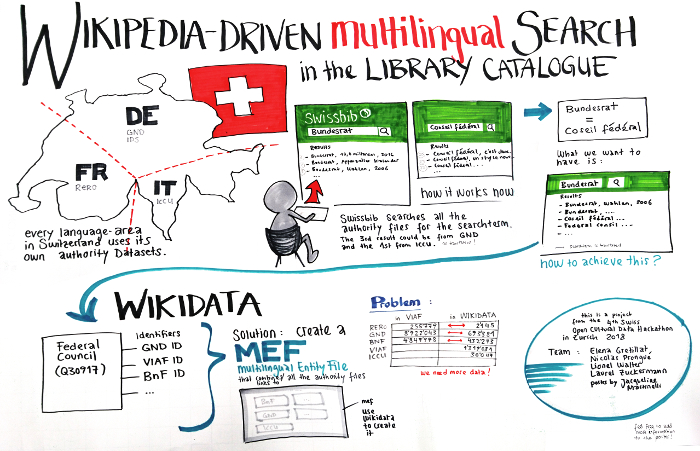 WIKIPEDIA-DRIVEN multilingual SEARCH
in the LIBRARY CATALOGUE
DE
GND
IDS
FR
RERO
IT
ICCU
every language-area
in Switzerland uses its
own authority Datasets.
Swissbib
Bundesrat
Results
- Bundesrat,
- Bundesrat,
- Bundesrat, Wahlen, 2006
...
Conseil fédéral
Results
- Conseil fédéral,
- Conseil fédéral,
- Conseil fédéral ...
...
how it works now
Swissbib searches all the
authority files for the searchterm.
The 3rd result could be from GND
and the 1st from ICCU.
Bundesrat
=
Coseil fédéral
What we want to
have is:
Bundesrat
Results
- Bundesrat, Wahlen, 2006
- Bundesrat, ...
- Conseil fédéral ...
- Federal consil ...
how to achieve this?
WIKIDATA
Federal
Council
(Q30717)
Identifiers
GND ID
VIAF ID
BnF ID
...
Solution: create a
MEF
multilingual Entity File
that all the authority files
links to
BNF
...
GND
...
ICCU
mef
use
Wikidata
to create
it
Problem:
in VIAF
in WIKIDATA
RERO
GND
BNF
VIAF
ICCU
we need more data!
this is a project
from the 4th Swiss
Open Cultural Data Hackathon
in Zurich 2018
Team: Elena Gretillat,
Nicolas Prongué
Lionel Walter
Laurel Zuckermann
poster by Jacqueline
Martinelli
feel free to add
more information
to the poster!